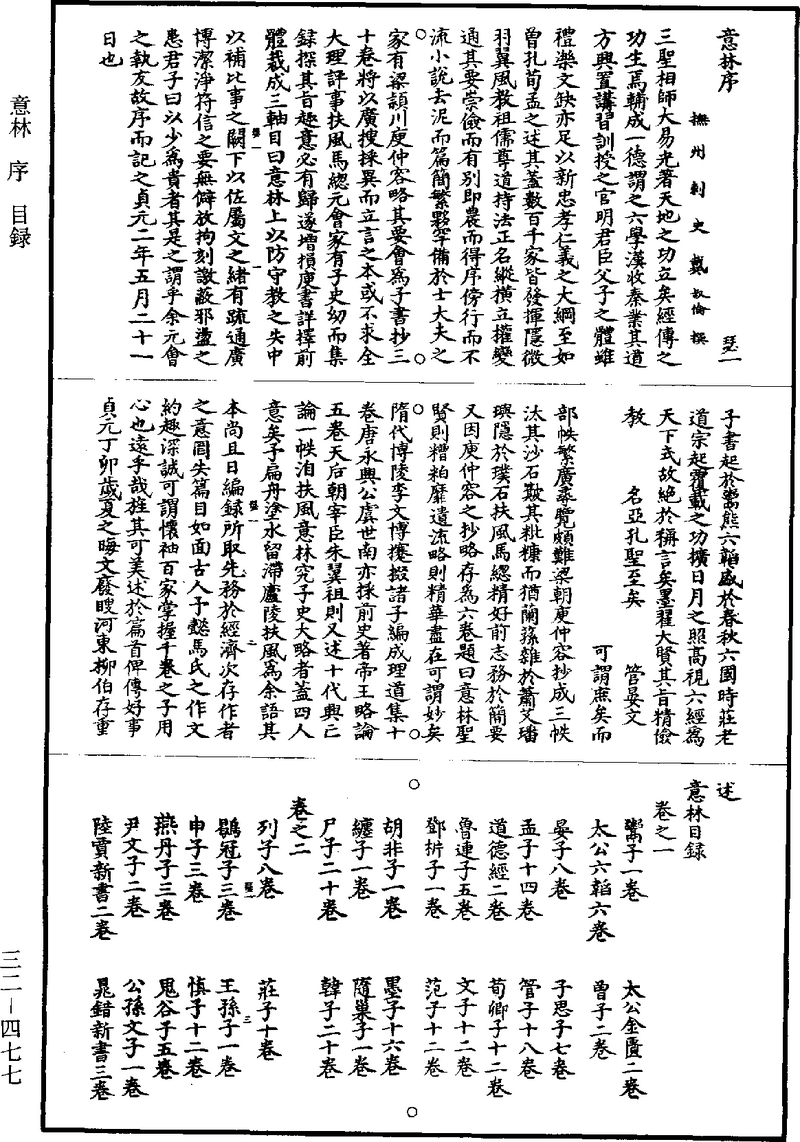 意林 序 目録
三二－四七七
意林序
撫州刺史戴叔倫撰 瑟一
三聖相師大易光著天地之功立矣經傳之
功生焉輔成一德謂之六學漢收秦業其道
方興置講習訓授之官明君臣父子之體雖
禮樂文缺亦足以新忠孝仁義之大綱至如
曾孔荀孟之述其蓋數百千家皆發揮隱微
羽翼風教祖儒尊道持法正名縱横立權變
通其要崇儉而有別即農而得序傍行而不
流小說去泥而篇簡繁夥罕備於士大夫之
家有梁潁川庾仲容略其要會爲子書抄三
十卷將以廣搜採異而立言之本或不求全
大理評事扶風馬緫元會家有子史幼而集
録探其旨趣意必有歸遂增損庾書詳擇前
體裁成三軸目曰意林上以防守教之失中
以補比事之闕下以佐屬文之緒有疏通廣
博潔淨符信之要無僻放拘刻譏蔽邪盪之
患君子曰以少爲貴者其是之謂乎余元會
之執友故序而記之貞元二年五月二十一
日也
子書起於鬻熊六韜盛於春秋六國時莊老
道宗起覆載之功横日月之照高視六經爲
天下式故絶於稱言矣墨翟大賢其旨精儉
教 名亞孔聖至矣 管晏文
可謂庶矣而
部帙繁廣尋覽頗難梁朝庾仲容抄成三帙
汰其沙石簸其粃糠而猶蘭蓀雜於蕭艾璠
璵隱於璞石扶風馬緫精好前志務於簡要
又因庾仲容之抄略存爲六卷題曰意林聖
賢則糟粕靡遺流略則精華盡在可謂妙矣
隋代博陵李文博攗掇諸子編成理道集十
卷唐永興公虞世南亦採前史著帝王略論
五卷天后朝宰臣朱翼祖則又述十代興亡
論一帙洎扶風意林究子史大略者蓋四人
意矣予扁舟塗水留滯廬陵扶風爲余語其
本尚且日編録所取先務於經濟次存作者
之意罔失篇目如面古人予懿馬氏之作文
約趣深誠可謂懷袖百家掌握千卷之子用
心也遠乎哉旌其可美述於篇首俾傳好事
貞元丁卯歲夏之晦文廢瞍河東柳伯存重
述
意林目録
卷之一
鬻子一卷 太公金匱二卷
太公六韜六卷 曾子二卷
晏子八卷 子思子七卷
孟子十四卷 管子十八卷
道德經二卷 荀卿子十二卷
魯連子五卷 文子十二卷
鄧析子一卷 范子十二卷
胡非子一卷 墨子十六卷
纏子一卷 隨巢子一卷
尸子二十卷 韓子二十卷
卷之二
列子八卷 莊子十卷
鶡冠子三卷 王孫子一卷
申子三卷 慎子十二卷
燕丹子三卷 鬼谷子五卷
尹文子二卷 公孫文子一卷
陸賈新書二卷 晁錯新書三卷